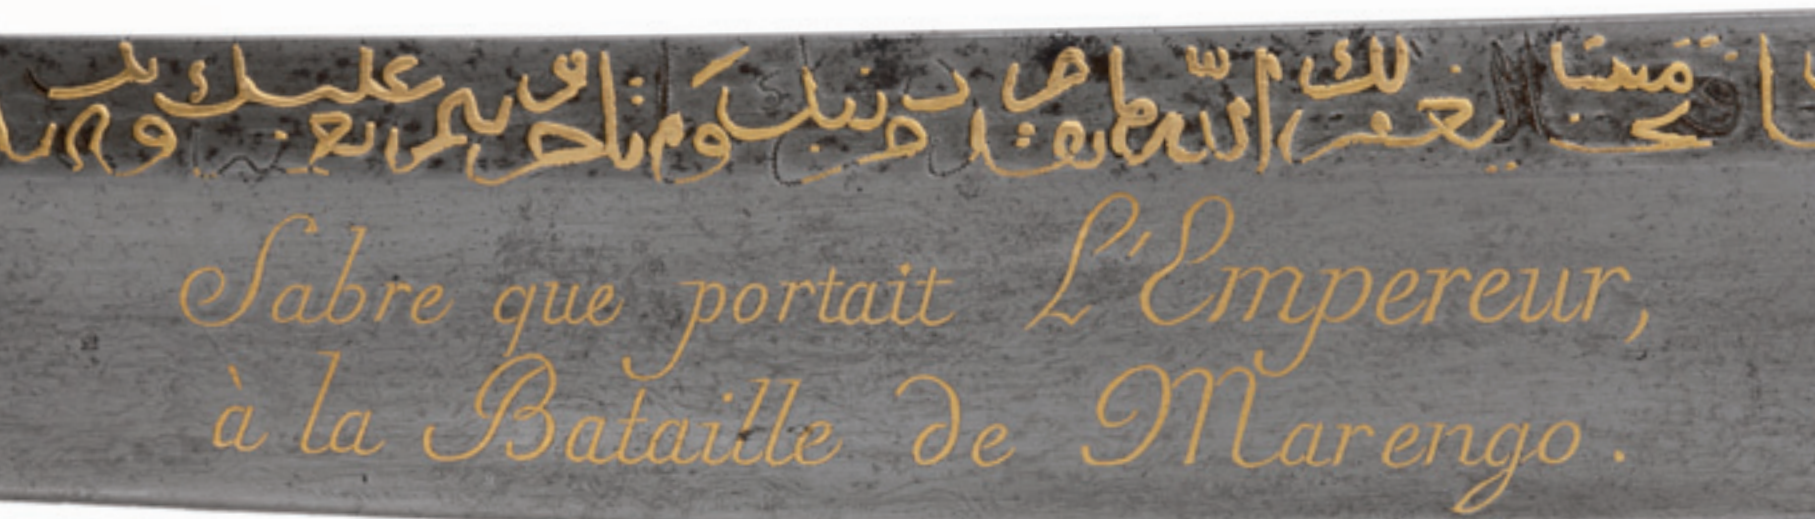 فتحا مبينا ليغفر لك الله ما تقدم من ذنبك وما تأخر ويتم نعمته عليك
Sabre que portait L'Empereur,
à la Bataille de Marengo.